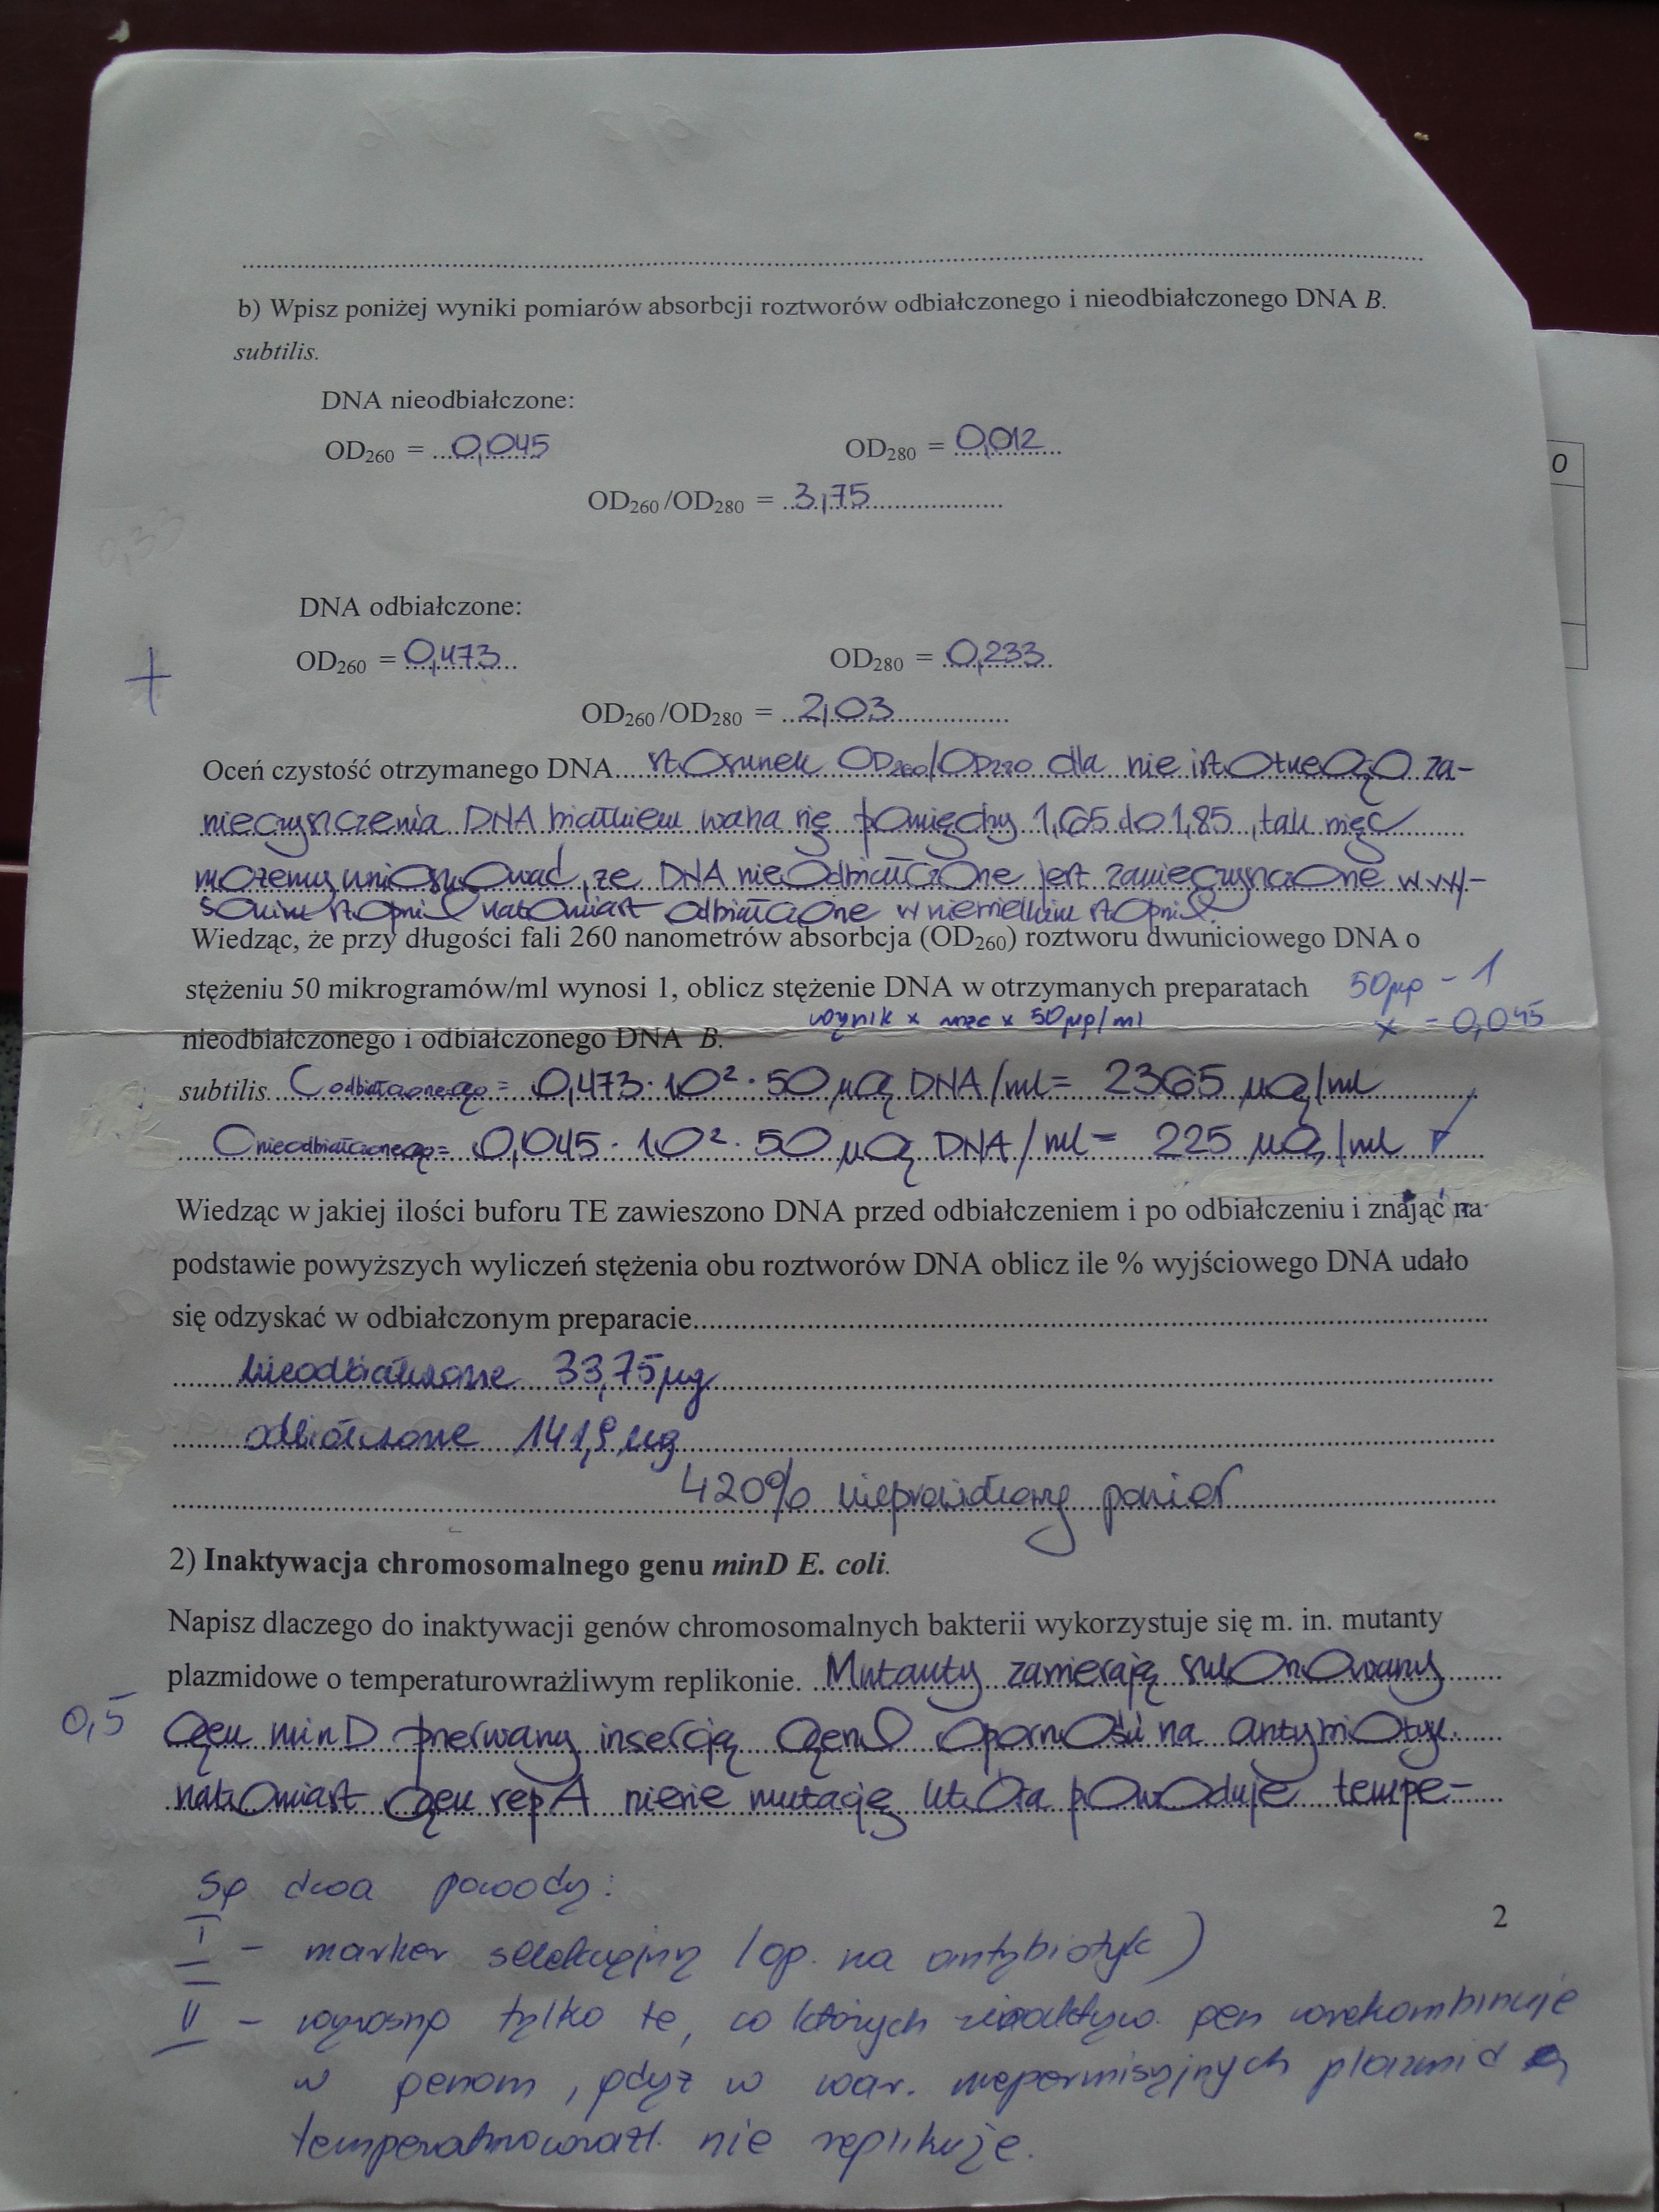 b) Wpisz poniżej wyniki pomiarów absorbcji roztworów odbiałczonego i nieodbiałczonego DNA B.
subtilis.
DNA nieodbiałczone:
OD260 = 0,045 OD280 = 0,012
OD260/OD280 = 3,75
0,33
DNA odbiałczone:
+
OD260 = 0,473 OD280 = 0,233
OD260/OD280 = 2,03
Oceń czystość otrzymanego DNA. stosunek OD260/OD280 dla nie istotnego za-
nieczyszczenia DNA białkiem waha się pomiędzy 1,65 do 1,85, tak więc
możemy wnioskować, że DNA nieodbiałczone jest zanieczyszczone w wy-
sokim stopniu natomiast odbiałczone w niewielkim stopniu.
Wiedząc, że przy długości fali 260 nanometrów absorbcja (OD260) roztworu dwuniciowego DNA o
stężeniu 50 mikrogramów/ml wynosi 1, oblicz stężenie DNA w otrzymanych preparatach 50µg - 1
wynik x rozc x 50µg/ml x - 0,045
nieodbiałczonego i odbiałczonego DNA B.
subtilis. C odbiałczonego = 0,473·10²·50 µg DNA/ml = 2365 µg/ml
C nieodbiałczonego = 0,045·10²·50 µg DNA/ml = 225 µg/ml
Wiedząc w jakiej ilości buforu TE zawieszono DNA przed odbiałczeniem i po odbiałczeniu i znając na
podstawie powyższych wyliczeń stężenia obu roztworów DNA oblicz ile % wyjściowego DNA udało
się odzyskać w odbiałczonym preparacie.
nieodbiałczone 33,75µg
odbiałczone 141,9 µg
420% nieprawidłowy pomiar
2) Inaktywacja chromosomalnego genu minD E. coli.
Napisz dlaczego do inaktywacji genów chromosomalnych bakterii wykorzystuje się m. in. mutanty
plazmidowe o temperaturowrażliwym replikonie. Mutanty zawierają sklonowany
0,5 gen minD przerwany insercją genu oporności na antybiotyk.
natomiast gen repA niesie mutację która powoduje tempe-
Są dwa powody:
2
I - marker selekcyjny (op. na antybiotyk)
II - wyrosną tylko te, w których zinaktyw. gen wrekombinuje
w genom, gdyż w war. niepermisyjnych plazmid
temperaturowrażl. nie replikuje.